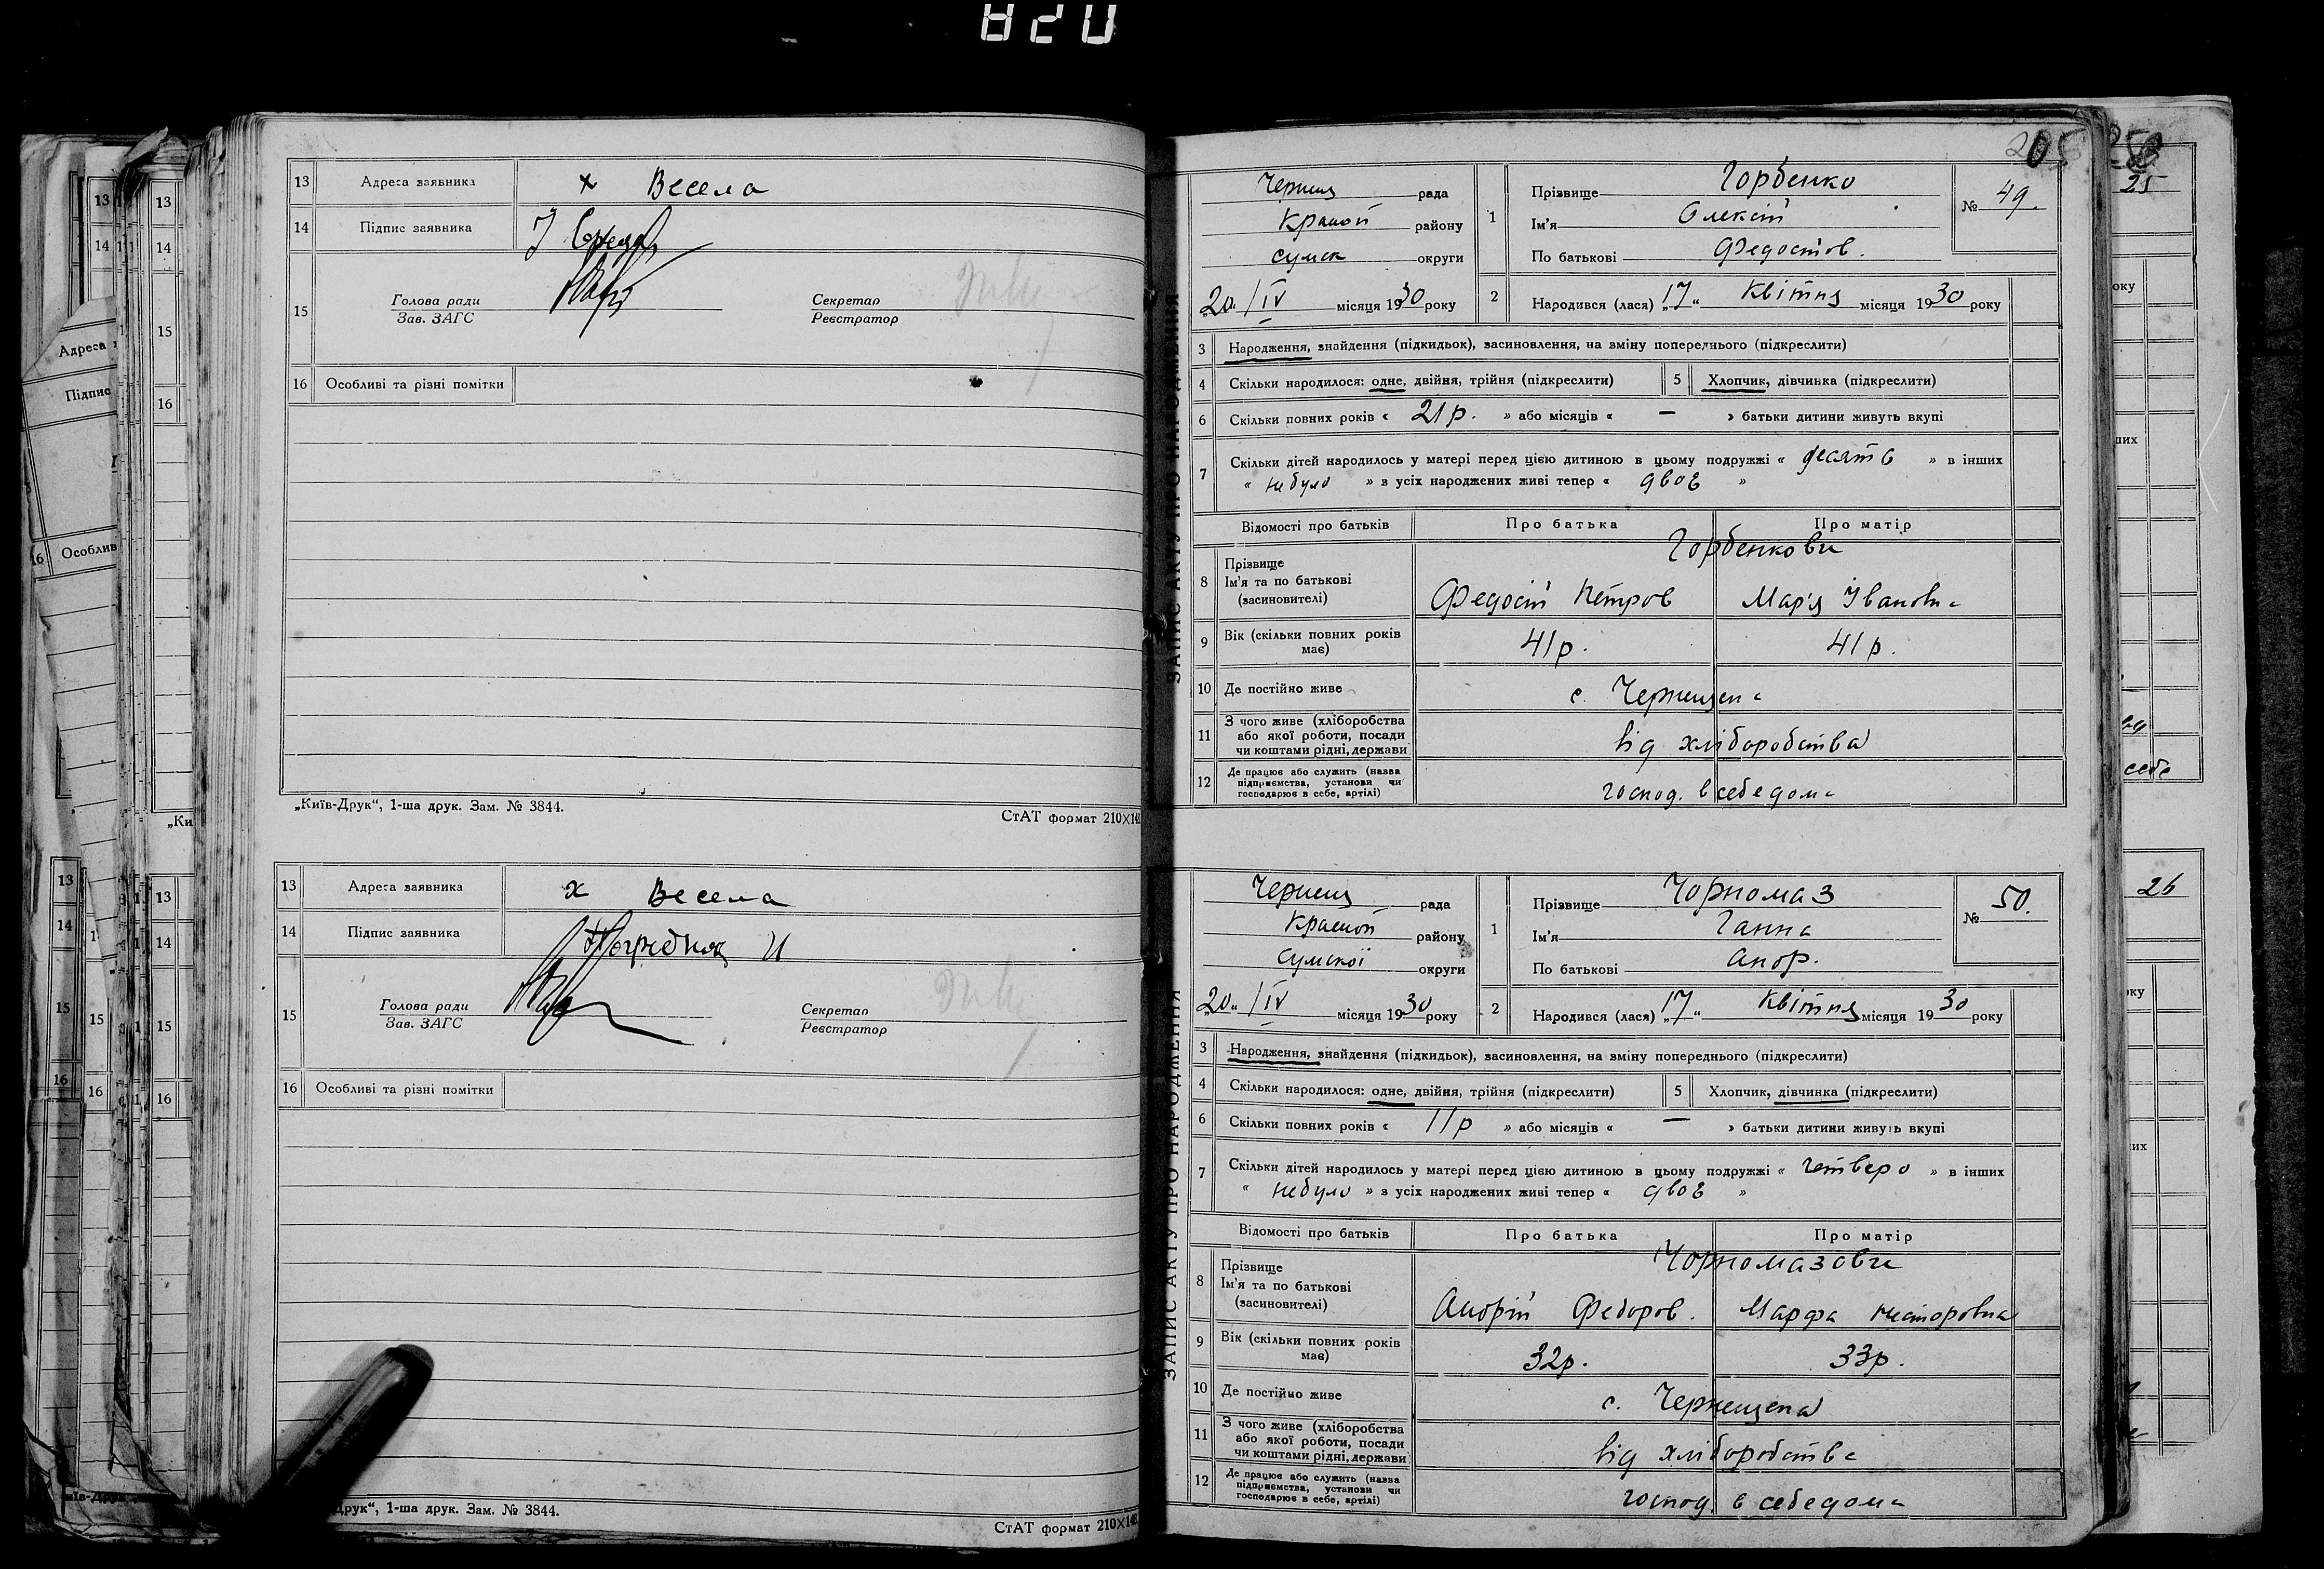 820
13 Адреса заявника х Весела
14 Підпис заявника
15 Голова ради Секретар
Зав. ЗАГС Реєстратор
16 Особливі та різні помітки
„Київ-Друк“, 1-ша друк. Зам. № 3844.
СтАТ формат 210×14
13 Адреса заявника х Весела
14 Підпис заявника
15 Голова ради Секретар
Зав. ЗАГС Реєстратор
16 Особливі та різні помітки
Друк“, 1-ша друк. Зам. № 3844.
СтАТ формат 210×14
205
ЗАПИС АКТУ ПРО НАРОДЖЕННЯ
Чернещ рада
Красноп району
Сумск округи
„20“ / IV місяця 1930 року
1 Прізвище Горбенко
Ім'я Олексій
По батькові Федосіїв.
№ 49.
2 Народився (лася) „17“ Квітня місяця 1930 року
3 Народження, знайдення (підкидьок), засиновлення, на зміну попереднього (підкреслити)
4 Скільки народилося: одне, двійня, трійня (підкреслити) 5 Хлопчик, дівчинка (підкреслити)
6 Скільки повних років « 21 р. » або місяців « — » батьки дитини живуть вкупі
7 Скільки дітей народилось у матері перед цією дитиною в цьому подружжі « десять » в інших
« небуло » з усіх народжених живі тепер « двоє »
Відомості про батьків Про батька Про матір
8 Прізвище Горбенкови
Ім'я та по батькові
(засиновителі) Федосій Петров Мар'я Івановна
9 Вік (скільки повних років має) 41 р. 41 р.
10 Де постійно живе с. Чернещена
11 З чого живе (хліборобства
або якої роботи, посади
чи коштами рідні, держави від хліборобства
12 Де працює або служить (назва
підприємства, установи чи
господарює в себе, артілі) господ. в себе дома
Чернещ рада
Красноп району
Сумскої округи
„20“ / IV місяця 1930 року
1 Прізвище Чорномаз
Ім'я Ганна
По батькові Андр.
№ 50.
2 Народився (лася) „17“ Квітня місяця 1930 року
3 Народження, знайдення (підкидьок), засиновлення, на зміну попереднього (підкреслити)
4 Скільки народилося: одне, двійня, трійня (підкреслити) 5 Хлопчик, дівчинка (підкреслити)
6 Скільки повних років « 11 р » або місяців « — » батьки дитини живуть вкупі
7 Скільки дітей народилось у матері перед цією дитиною в цьому подружжі « четверо » в інших
« небуло » з усіх народжених живі тепер « двоє »
Відомості про батьків Про батька Про матір
8 Прізвище Чорномазови
Ім'я та по батькові
(засиновителі) Андрій Федоров. Марфа Несторовна
9 Вік (скільки повних років має) 32 р. 33 р.
10 Де постійно живе с. Чернещена
11 З чого живе (хліборобства
або якої роботи, посади
чи коштами рідні, держави від хліборобства
12 Де працює або служить (назва
підприємства, установи чи
господарює в себе, артілі) господ. в себе дома
ЗАПИС АКТУ ПРО НАРОДЖЕННЯ
25
26
себе